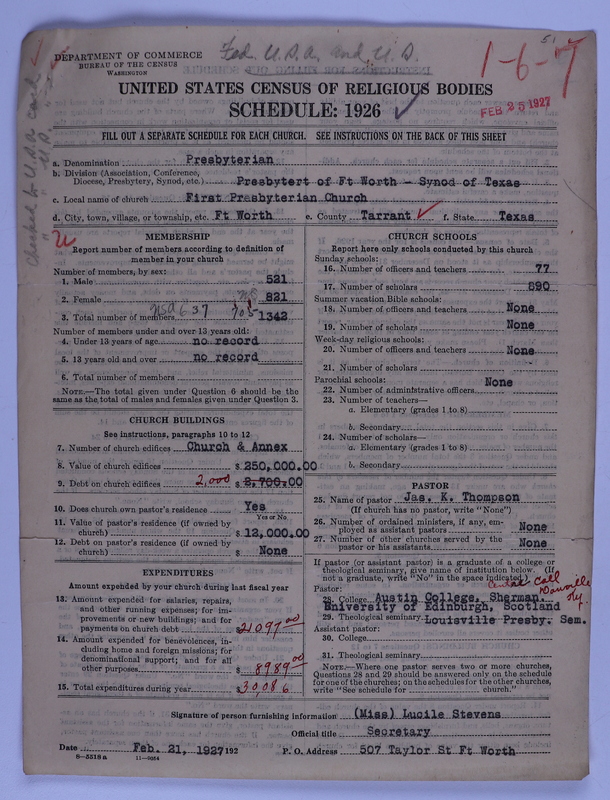 DEPARTMENT OF COMMERCE
BUREAU OF THE CENSUS
WASHINGTON
Fed. U.S.A. and U.S.
1-6-7
51
UNITED STATES CENSUS OF RELIGIOUS BODIES
SCHEDULE: 1926
FEB 25 1927
FILL OUT A SEPARATE SCHEDULE FOR EACH CHURCH. SEE INSTRUCTIONS ON THE BACK OF THIS SHEET
a. Denomination Presbyterian
b. Division (Association, Conference,
Diocese, Presbytery, Synod, etc.) Presbytert of Ft Worth - Synod of Texas
c. Local name of church First Presbyterian Church
d. City, town, village, or township, etc. Ft Worth e. County Tarrant f. State Texas
MEMBERSHIP
Report number of members according to definition of
member in your church
Number of members, by sex:
1. Male 521
2. Female 821
3. Total number of members 1342
USA 637 705
Number of members under and over 13 years old:
4. Under 13 years of age no record
5. 13 years old and over no record
6. Total number of members
NOTE.—The total given under Question 6 should be the
same as the total of males and females given under Question 3.
CHURCH BUILDINGS
See instructions, paragraphs 10 to 12
7. Number of church edifices Church & Annex
8. Value of church edifices $ 250,000.00
9. Debt on church edifices 2,000 $ 2,700.00
10. Does church own pastor's residence Yes
Yes or No
11. Value of pastor's residence (if owned by
church) $ 12,000.00
12. Debt on pastor's residence (if owned by
church) $ None
EXPENDITURES
Amount expended by your church during last fiscal year
13. Amount expended for salaries, repairs,
and other running expenses; for im-
provements or new buildings; and for
payments on church debt $ 21097 00
14. Amount expended for benevolences, in-
cluding home and foreign missions; for
denominational support; and for all
other purposes $ 8989 00
15. Total expenditures during year $ 30086
CHURCH SCHOOLS
Report here only schools conducted by this church
Sunday schools:
16. Number of officers and teachers 77
17. Number of scholars 890
Summer vacation Bible schools:
18. Number of officers and teachers None
19. Number of scholars None
Week-day religious schools:
20. Number of officers and teachers None
21. Number of scholars
Parochial schools: None
22. Number of administrative officers
23. Number of teachers—
a. Elementary (grades 1 to 8)
b. Secondary
24. Number of scholars—
a. Elementary (grades 1 to 8)
b. Secondary
PASTOR
25. Name of pastor Jas. K. Thompson
(If church has no pastor, write "None")
26. Number of ordained ministers, if any, em-
ployed as assistant pastors None
27. Number of other churches served by the
pastor or his assistants None
If pastor (or assistant pastor) is a graduate of a college or
theological seminary, give name of institution below. (If
not a graduate, write "No" in the space indicated.)
Pastor: Central Coll Danville Ky.
28. College Austin College, Sherman.
University of Edinburg, Scotland
29. Theological seminary Louisville Presby. Sem.
Assistant pastor:
30. College
31. Theological seminary
NOTE.—Where one pastor serves two or more churches,
Questions 28 and 29 should be answered only on the schedule
for one of the churches; on the schedules for the other churches,
write "See schedule for church."
Signature of person furnishing information (Miss) Lucile Stevens
Official title Secretary
Date Feb. 21, 1927 192 P. O. Address 507 Taylor St Ft Worth
8-5518a 11-9084